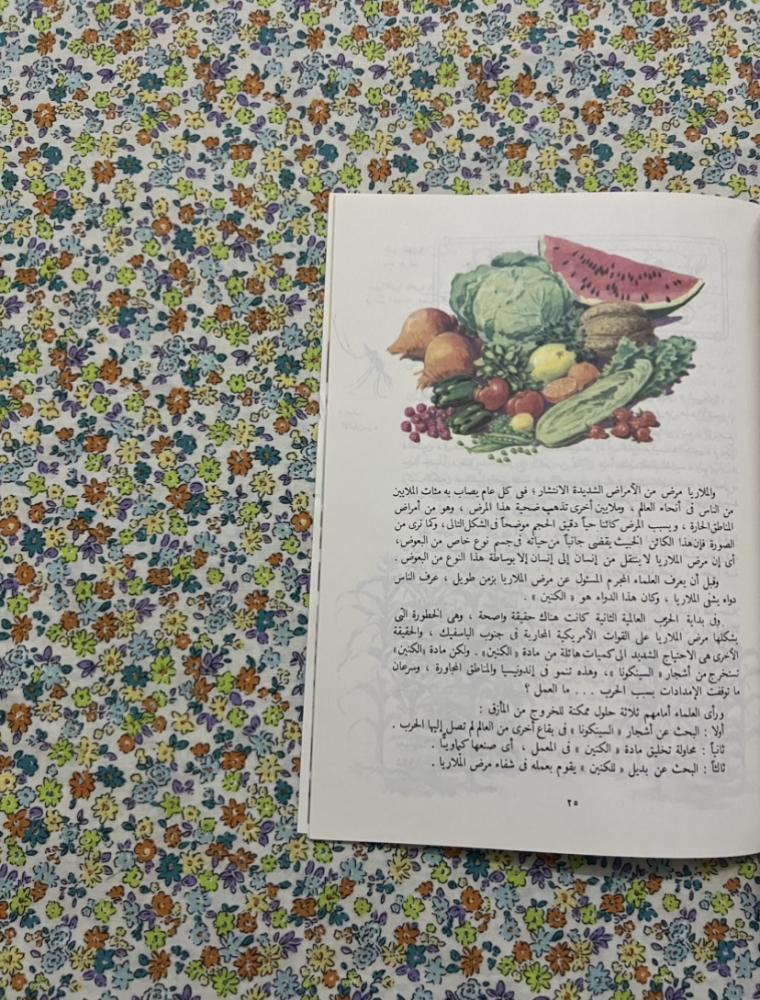 والملاريا مرض من الأمراض الشديدة الانتشار ؛ ففى كل عام يصاب به مئات الملايين
من الناس فى أنحاء العالم ، وملايين أخرى تذهب ضحية هذا المرض ، وهو من أمراض
المناطق الحارة ، ويسبب المرض كائنا حياً دقيق الحجم موضحاً فى الشكل التالى ، وكما ترى من
الصورة فإن هذا الكائن الخبيث يقضى جانباً من حياته فى جسم نوع خاص من البعوض ،
أى إن مرض الملاريا لا ينتقل من إنسان إلى إنسان إلا بوساطة هذا النوع من البعوض .
وقبل أن يعرف العلماء المجرم المسئول عن مرض الملاريا بزمن طويل ، عرف الناس
دواء يشفى الملاريا ، وكان هذا الدواء هو « الكنين » .
وفى بداية الحرب العالمية الثانية كانت هناك حقيقة واضحة ، وهى الخطورة التى
يشكلها مرض الملاريا على القوات الأمريكية المحاربة فى جنوب الباسفيك ، والحقيقة
الأخرى هى الاحتياج الشديد إلى كميات هائلة من مادة « الكنين » . ولكن مادة « الكنين »
تستخرج من أشجار « السينكونا » ، وهذه تنمو فى إندونيسيا والمناطق المجاورة ، وسرعان
ما توقفت الإمدادات بسبب الحرب . . . ما العمل ؟
ورأى العلماء أمامهم ثلاثة حلول ممكنة للخروج من المأزق :
أولا : البحث عن أشجار « السينكونا » فى بقاع أخرى من العالم لم تصل إليها الحرب .
ثانياً : محاولة تخليق مادة « الكنين » فى المعمل ، أى صنعها كيماويًّا .
ثالثاً : البحث عن بديل « للكنين » يقوم بعمله فى شفاء مرض الملاريا .
٢٥